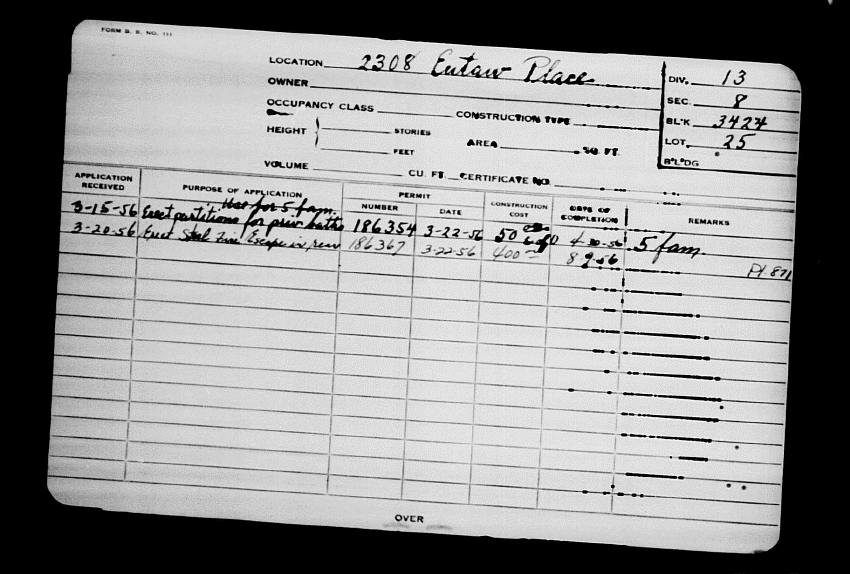 FORM B. B. NO. 111
LOCATION 2308 Eutaw Place
OWNER
OCCUPANCY CLASS CONSTRUCTION TYPE
HEIGHT STORIES
FEET
AREA SQ FT.
VOLUME CU. FT. CERTIFICATE NO.
DIV. 13
SEC. 8
BL'K 3424
LOT. 25
B'L'DG
APPLICATION RECEIVED PURPOSE OF APPLICATION PERMIT NUMBER DATE CONSTRUCTION COST DATE OF COMPLETION REMARKS
Use for 5 fam.
3-15-56 Erect partitions for priv baths 186354 3-22-56 50 4-30-56 5 fam.
3-20-56 Erect Steel Fire Escape in rear 186367 3-22-56 400 8-9-56
Pl. 871
OVER